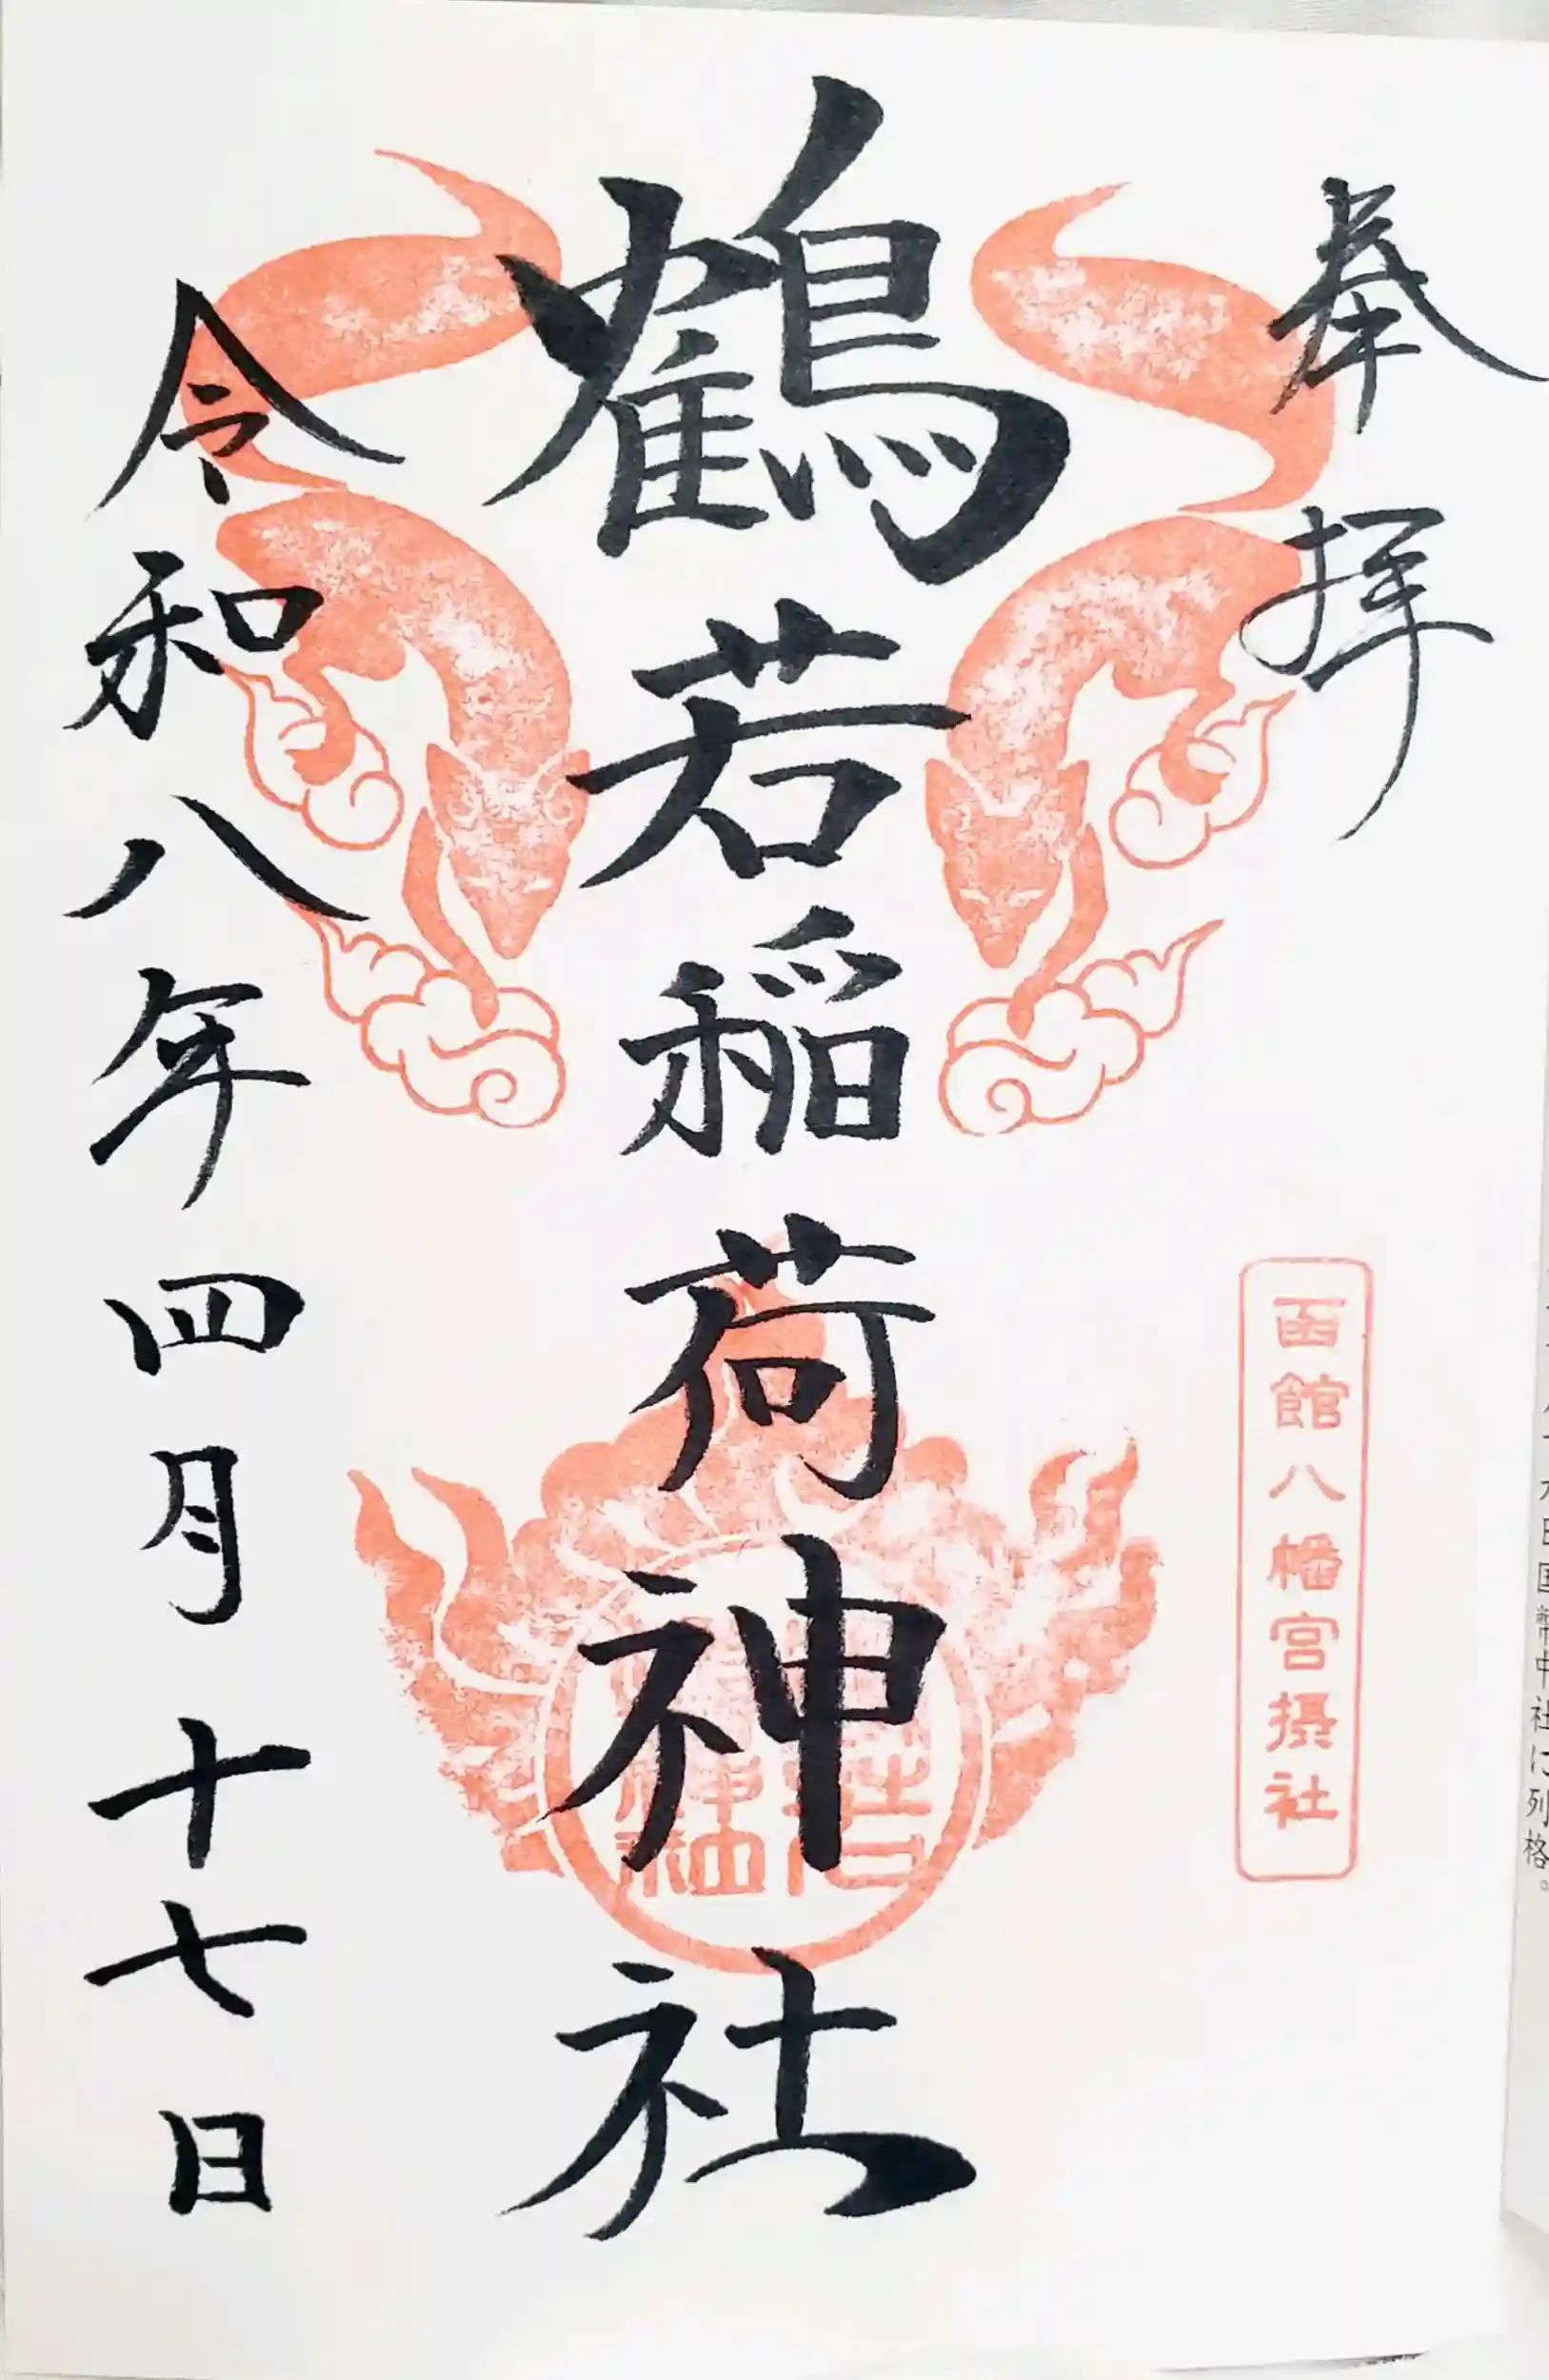 奉拝
函館八幡宮摂社
鶴若稲荷神社
令和八年四月十七日
国幣中社に列格。